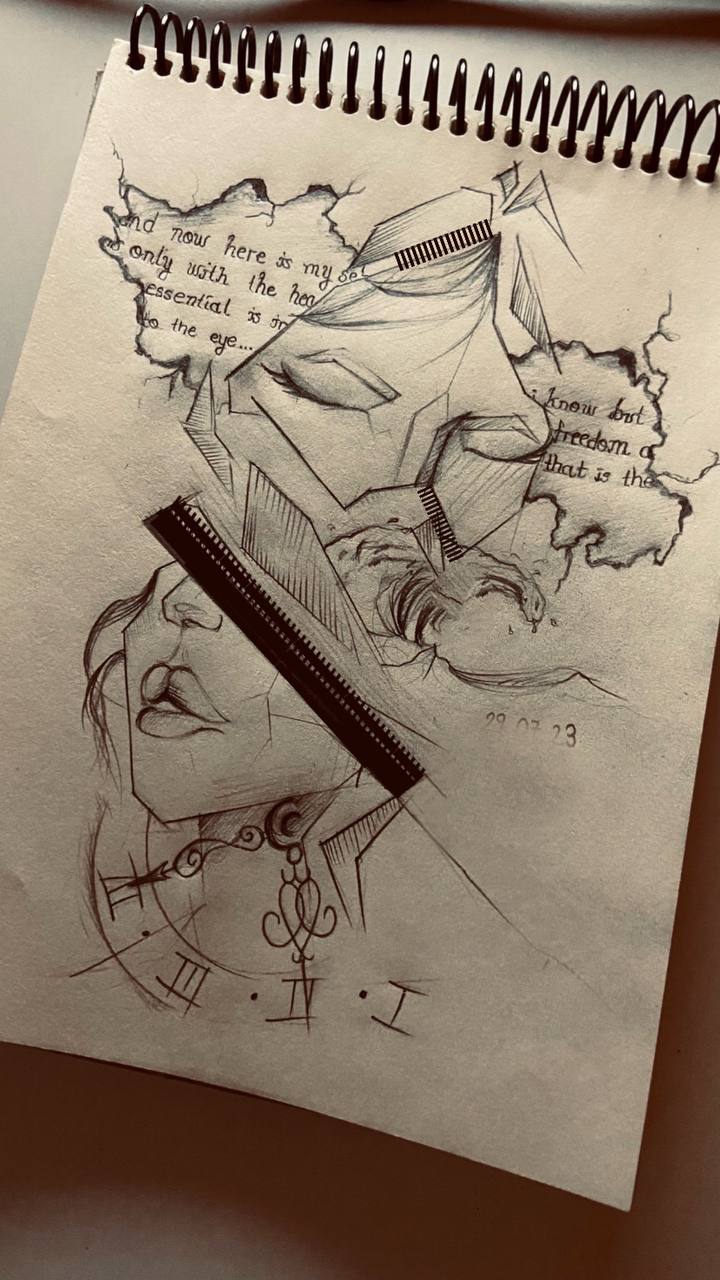 and now here is my se
only with the hea
essential is in
to the eye...
i know but
freedom a
that is the
29 07 23
II
III · IV · I